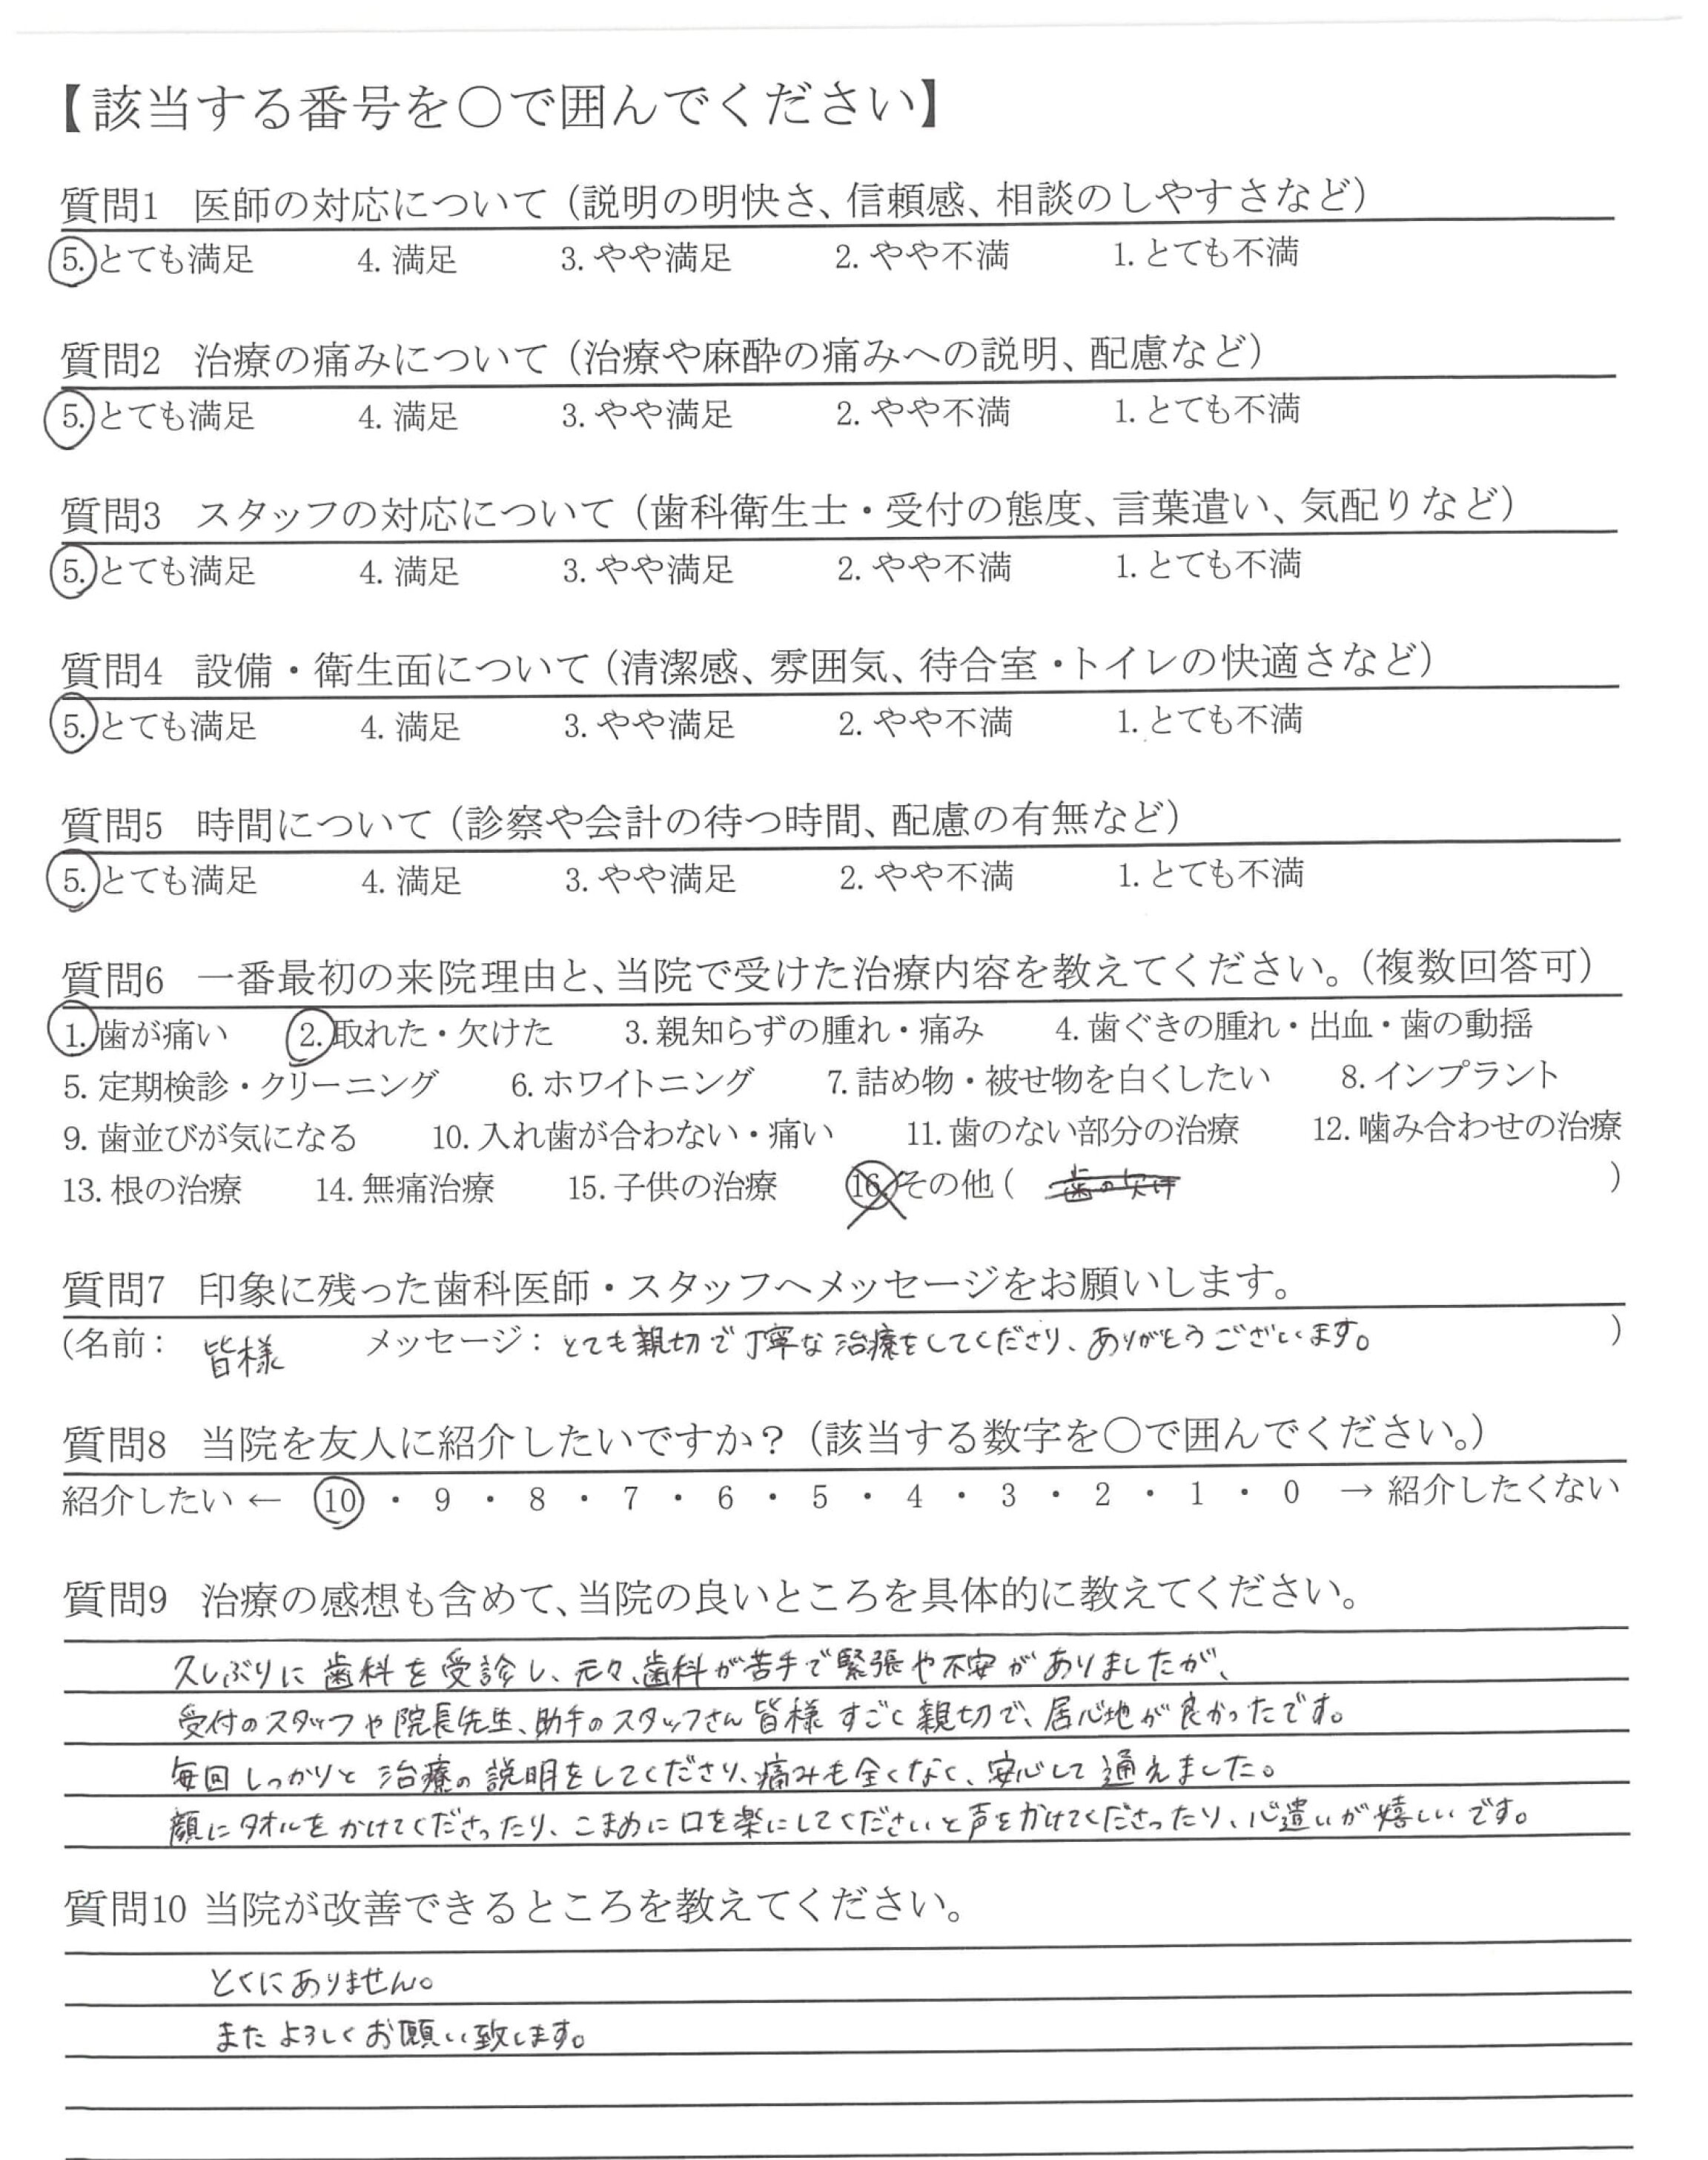 【該当する番号を○で囲んでください】
質問1 医師の対応について（説明の明快さ、信頼感、相談のしやすさなど）
5. とても満足 4. 満足 3. やや満足 2. やや不満 1. とても不満
質問2 治療の痛みについて（治療や麻酔の痛みへの説明、配慮など）
5. とても満足 4. 満足 3. やや満足 2. やや不満 1. とても不満
質問3 スタッフの対応について（歯科衛生士・受付の態度、言葉遣い、気配りなど）
5. とても満足 4. 満足 3. やや満足 2. やや不満 1. とても不満
質問4 設備・衛生面について（清潔感、雰囲気、待合室・トイレの快適さなど）
5. とても満足 4. 満足 3. やや満足 2. やや不満 1. とても不満
質問5 時間について（診察や会計の待つ時間、配慮の有無など）
5. とても満足 4. 満足 3. やや満足 2. やや不満 1. とても不満
質問6 一番最初の来院理由と、当院で受けた治療内容を教えてください。（複数回答可）
1. 歯が痛い 2. 取れた・欠けた 3. 親知らずの腫れ・痛み 4. 歯ぐきの腫れ・出血・歯の動揺
5. 定期検診・クリーニング 6. ホワイトニング 7. 詰め物・被せ物を白くしたい 8. インプラント
9. 歯並びが気になる 10. 入れ歯が合わない・痛い 11. 歯のない部分の治療 12. 噛み合わせの治療
13. 根の治療 14. 無痛治療 15. 子供の治療 16. その他（ 歯の欠け ）
質問7 印象に残った歯科医師・スタッフへメッセージをお願いします。
（名前： 皆様 メッセージ：とても親切で丁寧な治療をしてくださり、ありがとうございます。 ）
質問8 当院を友人に紹介したいですか？（該当する数字を○で囲んでください。）
紹介したい ← 10 ・ 9 ・ 8 ・ 7 ・ 6 ・ 5 ・ 4 ・ 3 ・ 2 ・ 1 ・ 0 → 紹介したくない
質問9 治療の感想も含めて、当院の良いところを具体的に教えてください。
久しぶりに歯科を受診し、元々、歯科が苦手で緊張や不安がありましたが、
受付のスタッフや院長先生、助手のスタッフさん皆様すごく親切で、居心地が良かったです。
毎回しっかりと治療の説明をしてくださり、痛みも全くなく、安心して通えました。
顔にタオルをかけてくださったり、こまめに口を楽にしてくださいと声をかけてくださったり、心遣いが嬉しいです。
質問10 当院が改善できるところを教えてください。
とくにありません。
またよろしくお願い致します。